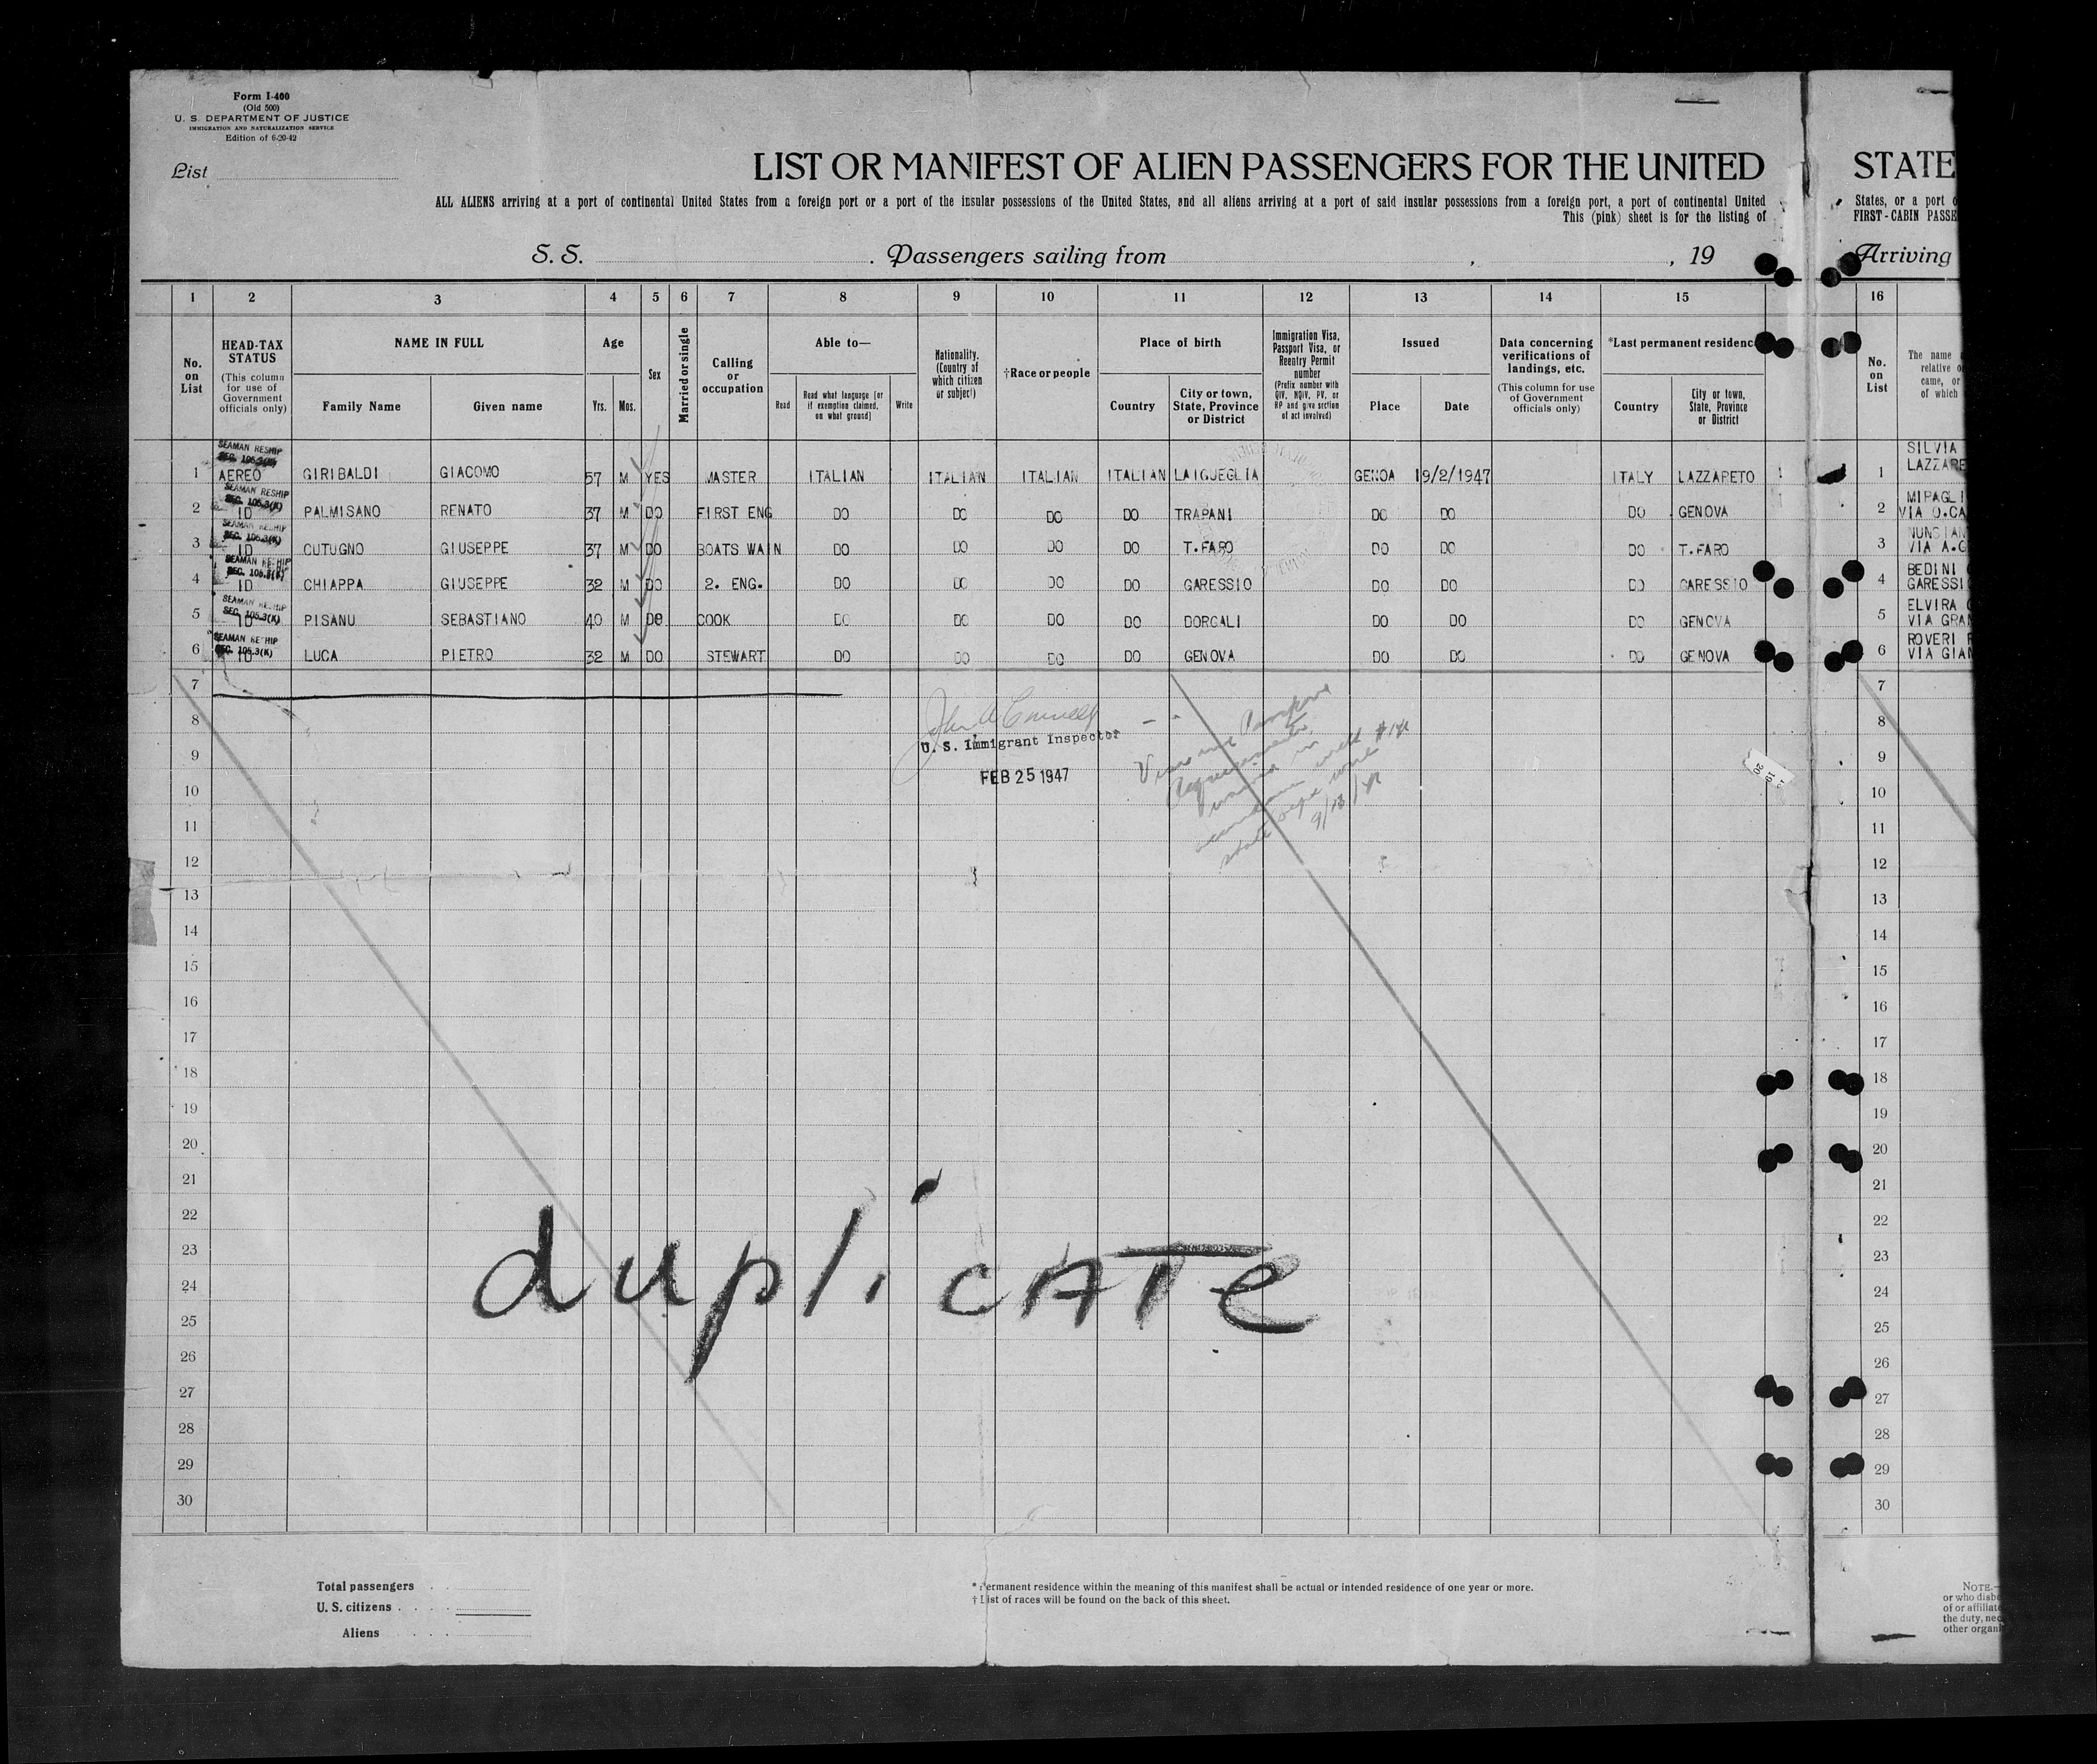 Form I-400
(Old 500)
U. S. DEPARTMENT OF JUSTICE
IMMIGRATION AND NATURALIZATION SERVICE
Edition of 6-20-42
List
LIST OR MANIFEST OF ALIEN PASSENGERS FOR THE UNITED STATE
ALL ALIENS arriving at a port of continental United States from a foreign port or a port of the insular possessions of the United States, and all aliens arriving at a port of said insular possessions from a foreign port, a port of continental United States, or a port o
This (pink) sheet is for the listing of FIRST-CABIN PASSE
S. S. . Passengers sailing from , , 19 Arriving
1 2 3 4 5 6 7 8 9 10 11 12 13 14 15 16
No. on List
HEAD-TAX STATUS
(This column for use of Government officials only)
NAME IN FULL
Family Name Given name
Age
Yrs. Mos.
Sex
Married or single
Calling or occupation
Able to—
Read
Read what language [or if exemption claimed, on what ground]
Write
Nationality. (Country of which citizen or subject)
†Race or people
Place of birth
Country
City or town, State, Province or District
Immigration Visa, Passport Visa, or Reentry Permit number
(Prefix number with QIV, NQIV, PV, or RP and give section of act involved)
Issued
Place Date
Data concerning verifications of landings, etc.
(This column for use of Government officials only)
*Last permanent residenc
Country
City or town, State, Province or District
No. on List
The name
relative o
came, or
of which
SEAMAN RESHIP
SEC. 105.3(K)
1 AEREO GIRIBALDI GIACOMO 57 M YES MASTER ITALIAN ITALIAN ITALIAN ITALIAN LAIGUEGLIA GENOA 19/2/1947 ITALY LAZZARETO 1 SILVIA
LAZZARE
SEAMAN RESHIP
SEC. 105.3(K)
2 ID PALMISANO RENATO 37 M DO FIRST ENG DO DO DO DO TRAPANI DO DO DO GENOVA 2 MIPAGLI
VIA O.CA
SEAMAN RESHIP
SEC. 105.3(K)
3 ID CUTUGNO GIUSEPPE 37 M DO BOATS WAIN DO DO DO DO T.FARO DO DO DO T.FARO 3 NUNSIAN
VIA A.G
SEAMAN RESHIP
SEC. 105.3(K)
4 ID CHIAPPA GIUSEPPE 32 M DO 2. ENG. DO DO DO DO GARESSIO DO DO DO GARESSIO 4 BEDINI
GARESSI
SEAMAN RESHIP
SEC. 105.3(K)
5 ID PISANU SEBASTIANO 40 M DO COOK DO DO DO DO DORGALI DO DO DO GENOVA 5 ELVIRA
VIA GRA
SEAMAN RESHIP
SEC. 105.3(K)
6 ID LUCA PIETRO 32 M DO STEWART DO DO DO DO GENOVA DO DO DO GENOVA 6 ROVERI
VIA GIAN
7 7
8 8
U. S. Immigrant Inspector
9 9
FEB 25 1947
9/18/46
10 10
11 11
12 12
13 13
14 14
15 15
16 16
17 17
18 18
19 19
20 20
21 21
22 22
23 23
duplicATe
24 24
25 25
26 26
27 27
28 28
29 29
30 30
Total passengers
U. S. citizens
Aliens
* Permanent residence within the meaning of this manifest shall be actual or intended residence of one year or more.
† List of races will be found on the back of this sheet.
NOTE.—
or who disbe
of or affiliate
the duty, nec
other organi